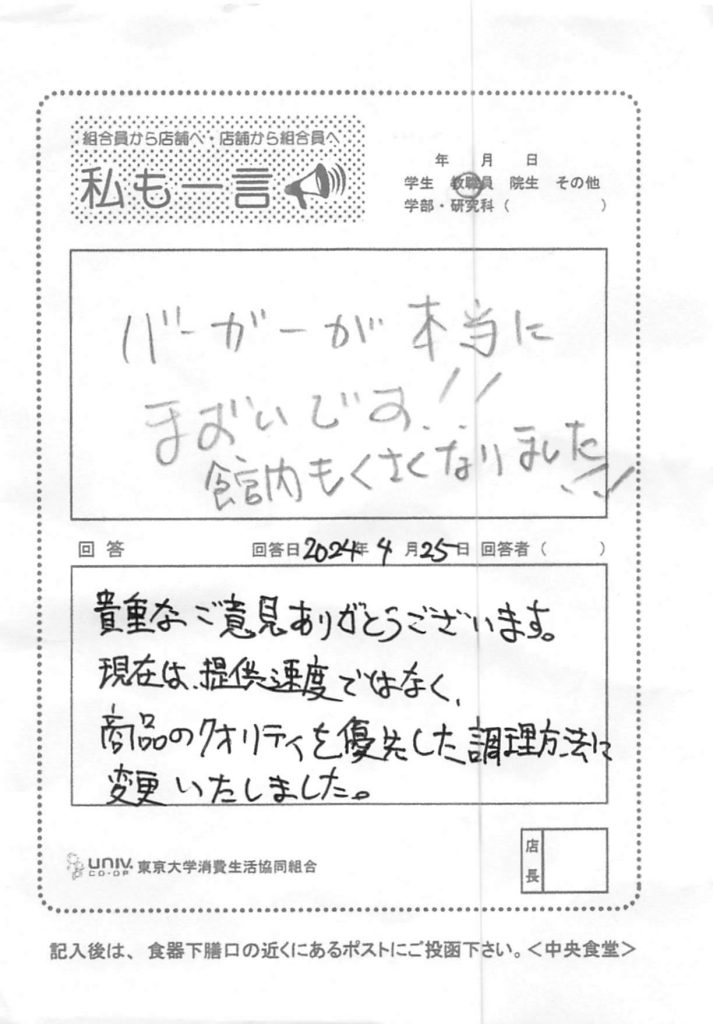 組合員から店舗へ・店舗から組合員へ
私も一言
年 月 日
学生 教職員 院生 その他
学部・研究科( )
バーガーが本当に
まずいです!!
館内もくさくなりました!!
回答 回答日2024年4月25日 回答者( )
貴重なご意見ありがとうございます。
現在は、提供速度ではなく、
商品のクオリティを優先した調理方法に
変更いたしました。
UNIV. CO-OP 東京大学消費生活協同組合
店長
記入後は、食器下膳口の近くにあるポストにご投函下さい。<中央食堂>